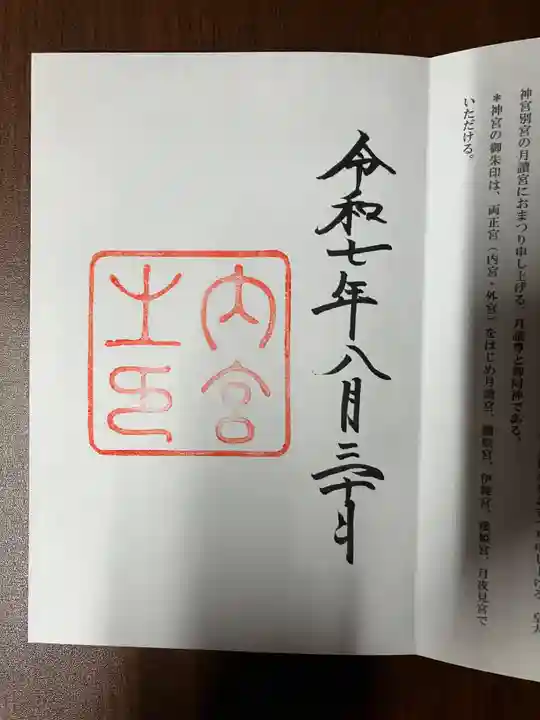 神宮別宮の月讀宮におまつり申し上げる、月讀尊と御同神である。
＊神宮の御朱印は、両正宮（内宮・外宮）をはじめ月讀宮、瀧原宮、伊雜宮、倭姫宮、月夜見宮で
いただける。
令和七年八月三十日
内宮
之印